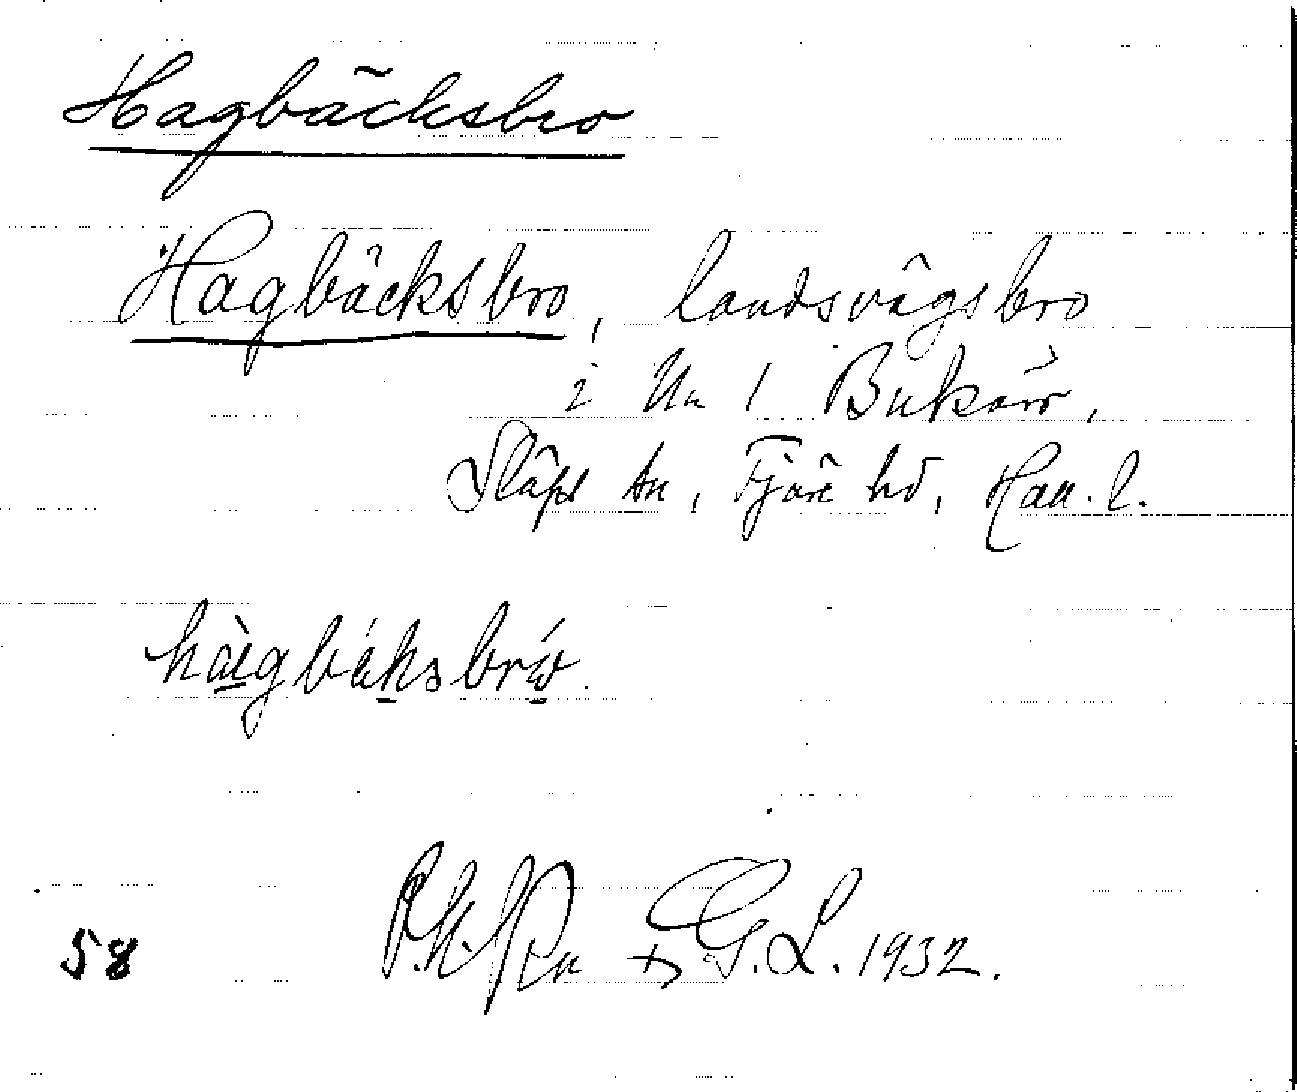 Hagbäcksbro
Hagbäcksbro, landsvägsbro
i Un 1 Bukärr,
Släps sn, Fjäre hd, Hall. l.
hàgbáksbró.
58 G.L. 1932.